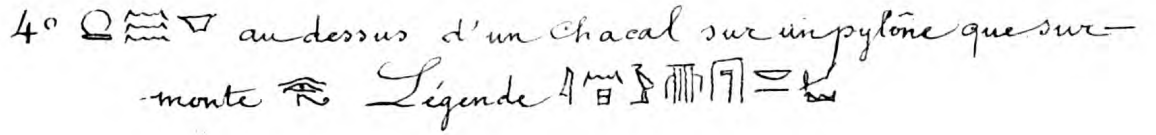 4° 𓍶𓈗𓎺 au dessus d'un chacal sur un pylône que sur-
monte 𓂀 Légende